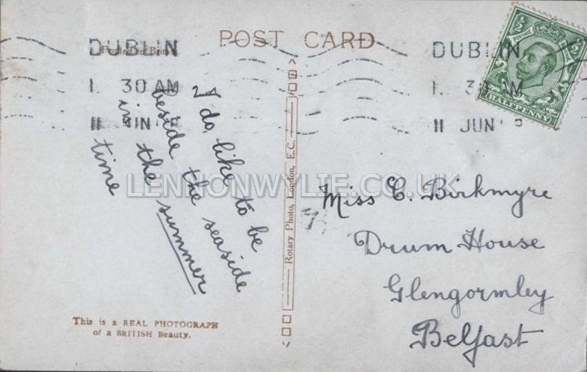 POST CARD
DUBLIN
1. 30 AM
11 JUN
DUBLIN
1. 3 AM
11 JUN
HALFPENNY
I do like to be
beside the seaside
in the summer
time
LENNONWYLIE.CO.UK
Rotary Photo, London, E.C.
Miss C. Birkmyre
Drum House
Glengormley
Belfast
This is a REAL PHOTOGRAPH
of a BRITISH Beauty.